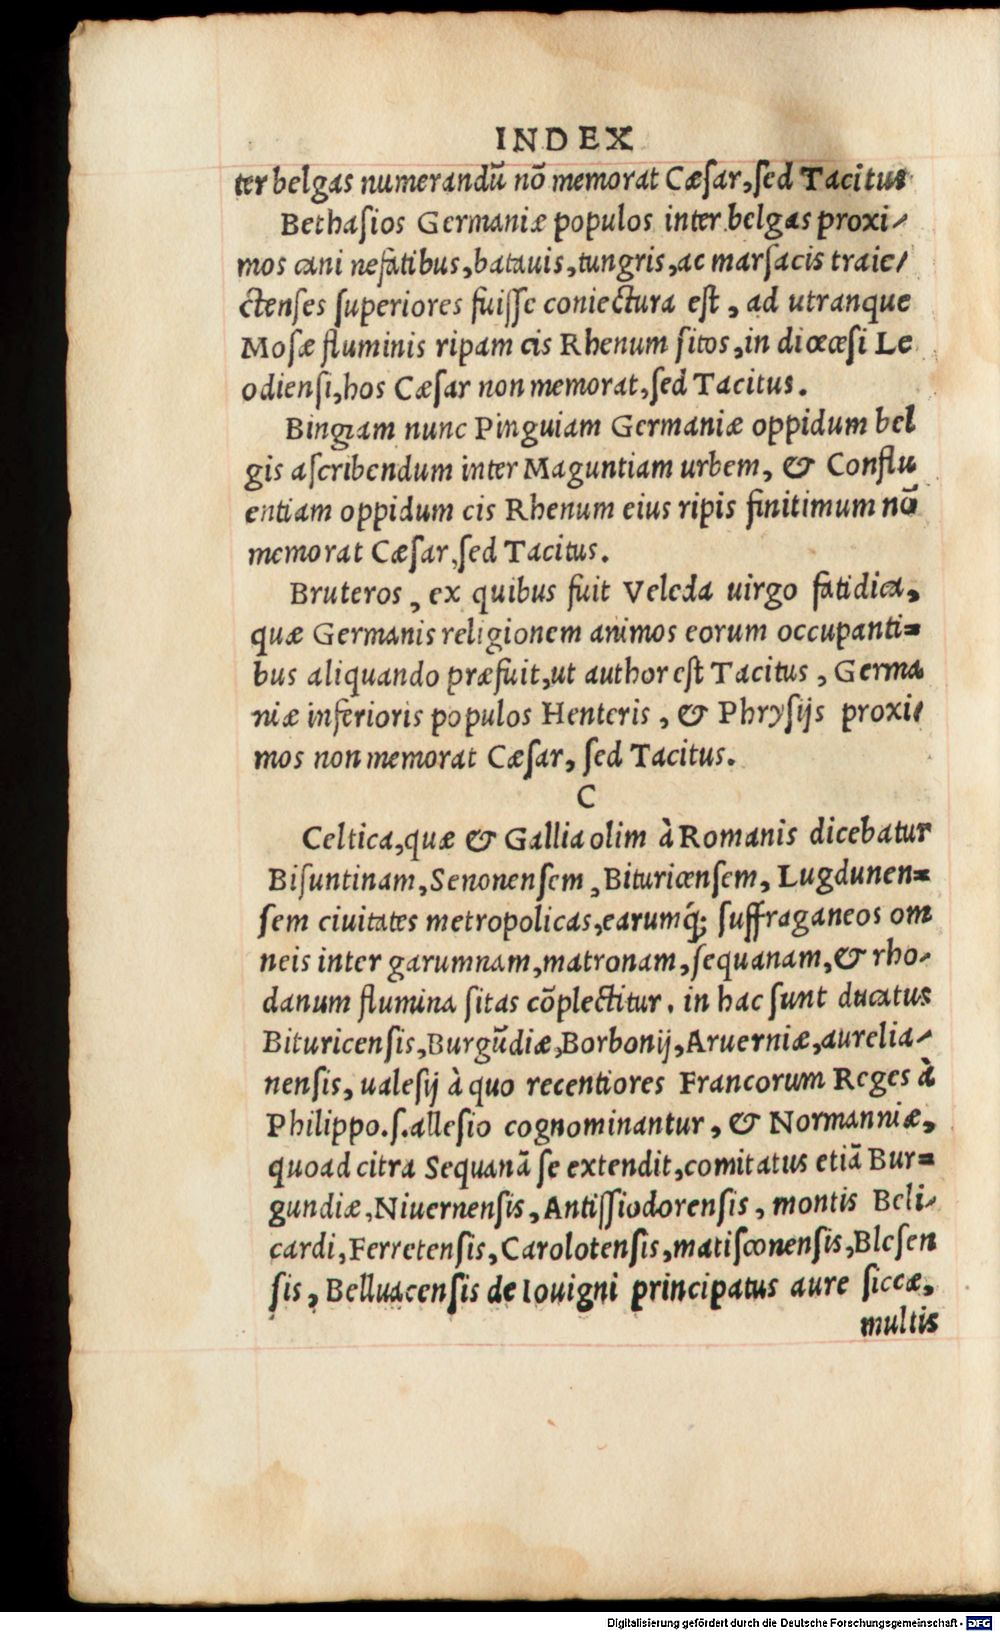 INDEX
ter belgas numerandū nō memorat Cæſar, ſed Tacitus
Bethaſios Germaniæ populos inter belgas proxi-
mos cani nefatibus, batauis, tungris, ac marſacis traie-
ctenſes ſuperiores fuiſſe coniectura eſt, ad utranque
Moſæ fluminis ripam cis Rhenum ſitos, in diœceſi Le
odienſi, hos Cæſar non memorat, ſed Tacitus.
Bingiam nunc Pinguiam Germaniæ oppidum bel
gis aſcribendum inter Maguntiam urbem, & Conflu
entiam oppidum cis Rhenum eius ripis finitimum nō
memorat Cæſar, ſed Tacitus.
Bruteros, ex quibus fuit Veleda uirgo fatidica,
quæ Germanis religionem animos eorum occupanti=
bus aliquando præfuit, ut author eſt Tacitus, Germa
niæ inferioris populos Henteris, & Phryſijs proxi-
mos non memorat Cæſar, ſed Tacitus.
C
Celtica, quæ & Gallia olim à Romanis dicebatur
Biſuntinam, Senonenſem, Bituricenſem, Lugdunen=
ſem ciuitates metropolicas, earumq́; ſuffraganeos om
neis inter garumnam, matronam, ſequanam, & rho-
danum flumina ſitas cōplectitur. in hac ſunt ducatus
Bituricenſis, Burgūdiæ, Borbonij, Aruerniæ, aurelia-
nenſis, ualeſij à quo recentiores Francorum Reges à
Philippo.ſ.alleſio cognominantur, & Normanniæ,
quoad citra Sequanā ſe extendit, comitatus etiā Bur=
gundiæ, Niuernenſis, Antiſſiodorenſis, montis Beli-
cardi, Ferretenſis, Carolotenſis, matiſconenſis, Bleſen
ſis, Belluacenſis de Iouigni principatus aure ſiccæ,
multis
Digitalisierung gefördert durch die Deutsche Forschungsgemeinschaft - DFG